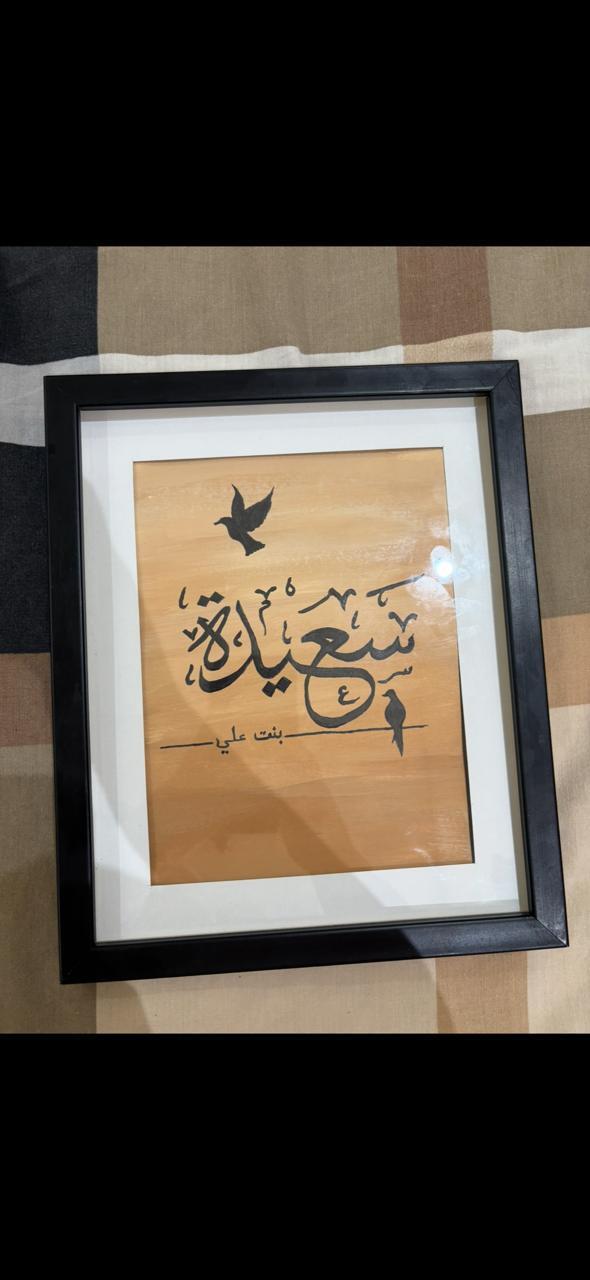 سعيدة
بنت علي